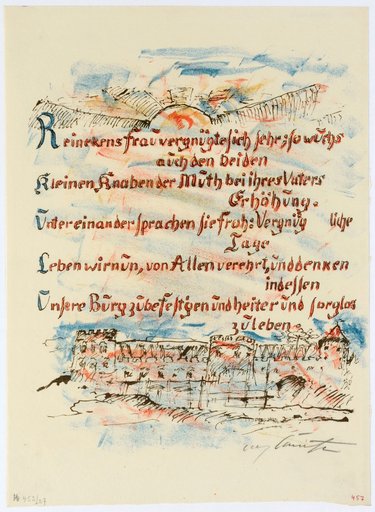 Reinekens frau vergnügte sich sehr; so wuchs
auch den beiden
Kleinen Knaben der Muth bei ihres Vaters
Erhöhung.
Unter einander sprachen sie froh: Vergnüg liche
Tage
Leben wir nun, von Allen verehrt, und denken
indessen
Unsere Burg zu befestigen und heiter und sorglos
zu leben.
452/27
452